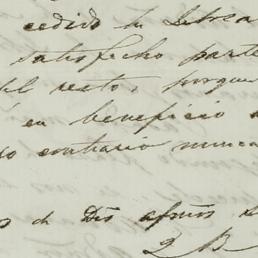 cedido la Letra
satisfecho parte
del resto, porque
en beneficio
contrario nunca
de Dis afmos
2 B